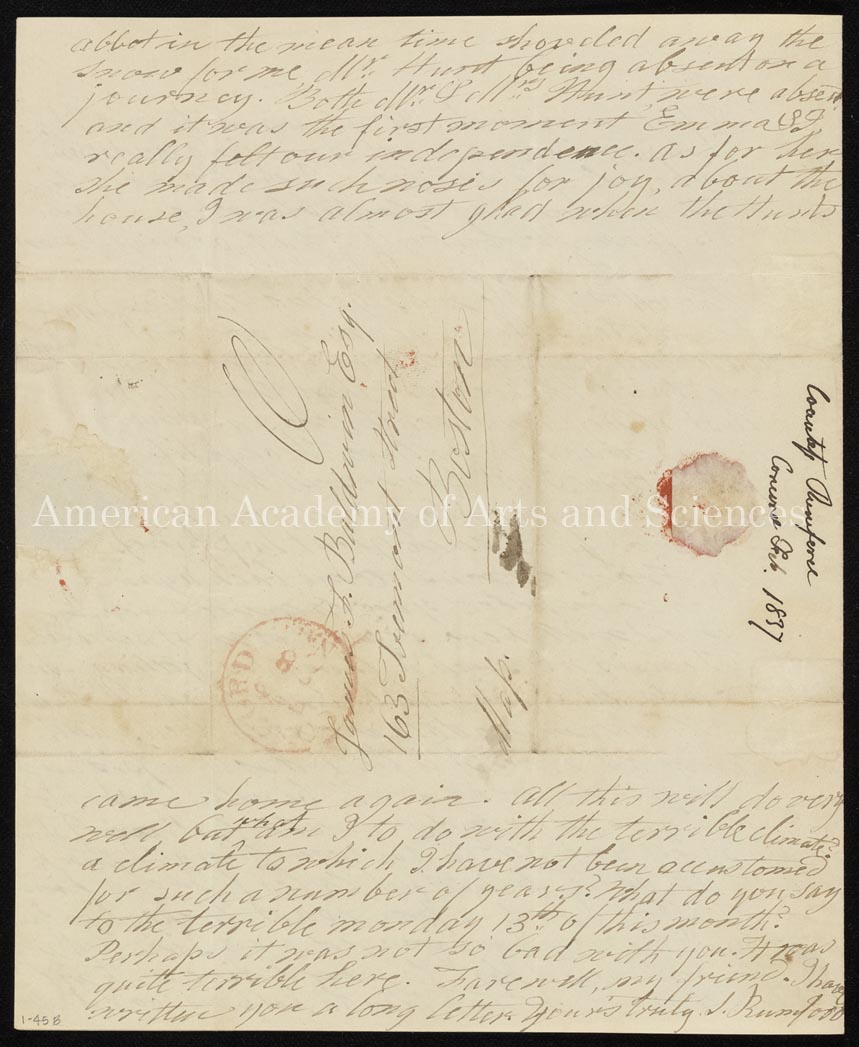 abbot in the mean time shoveled away the
snow for me Mr. Hunt being absent on a
journey. Both Mr. & Mrs Hunt, were absent
and it was the first moment Emma & I
really felt our independence. as for her
she made such noises for joy, about the
house, I was almost glad when the Hunts
6
James F. Baldwin Esq.
163 Tremont Street
Boston
Mass.
CONCORD
8
Countess Rumford
Concord Feb. 1837
American Academy of Arts and Sciences
came home again. All this will do very
well but what am I to do with the terrible climate?
a climate to which I have not been accustomed
for such a number of years? What do you say
to the terrible monday 13th of this month?
Perhaps it was not so bad with you. It was
quite terrible here. Farewell, my friend. I have
written you a long letter Your's truly S. Rumford
1-458